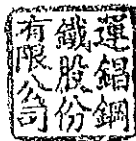 運錩鋼
鐵股份
有限公司